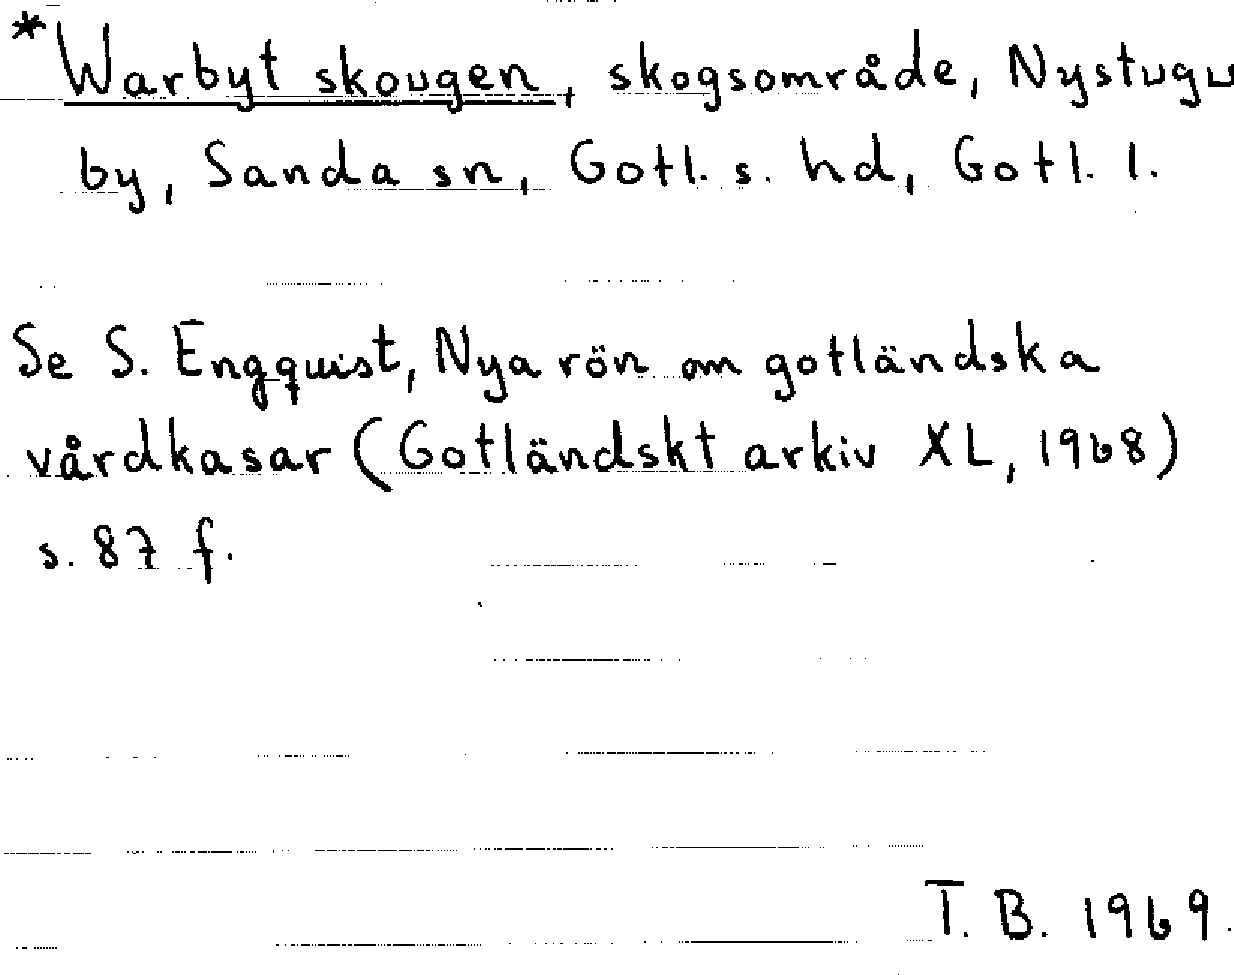 *Warbyt skougen, skogsområde, Nystugu
by, Sanda sn, Gotl. s. hd, Gotl. l.
Se S. Engquist, Nya rön om gotländska
vårdkasar (Gotländskt arkiv XL, 1968)
s. 87 f.
T. B. 1969.